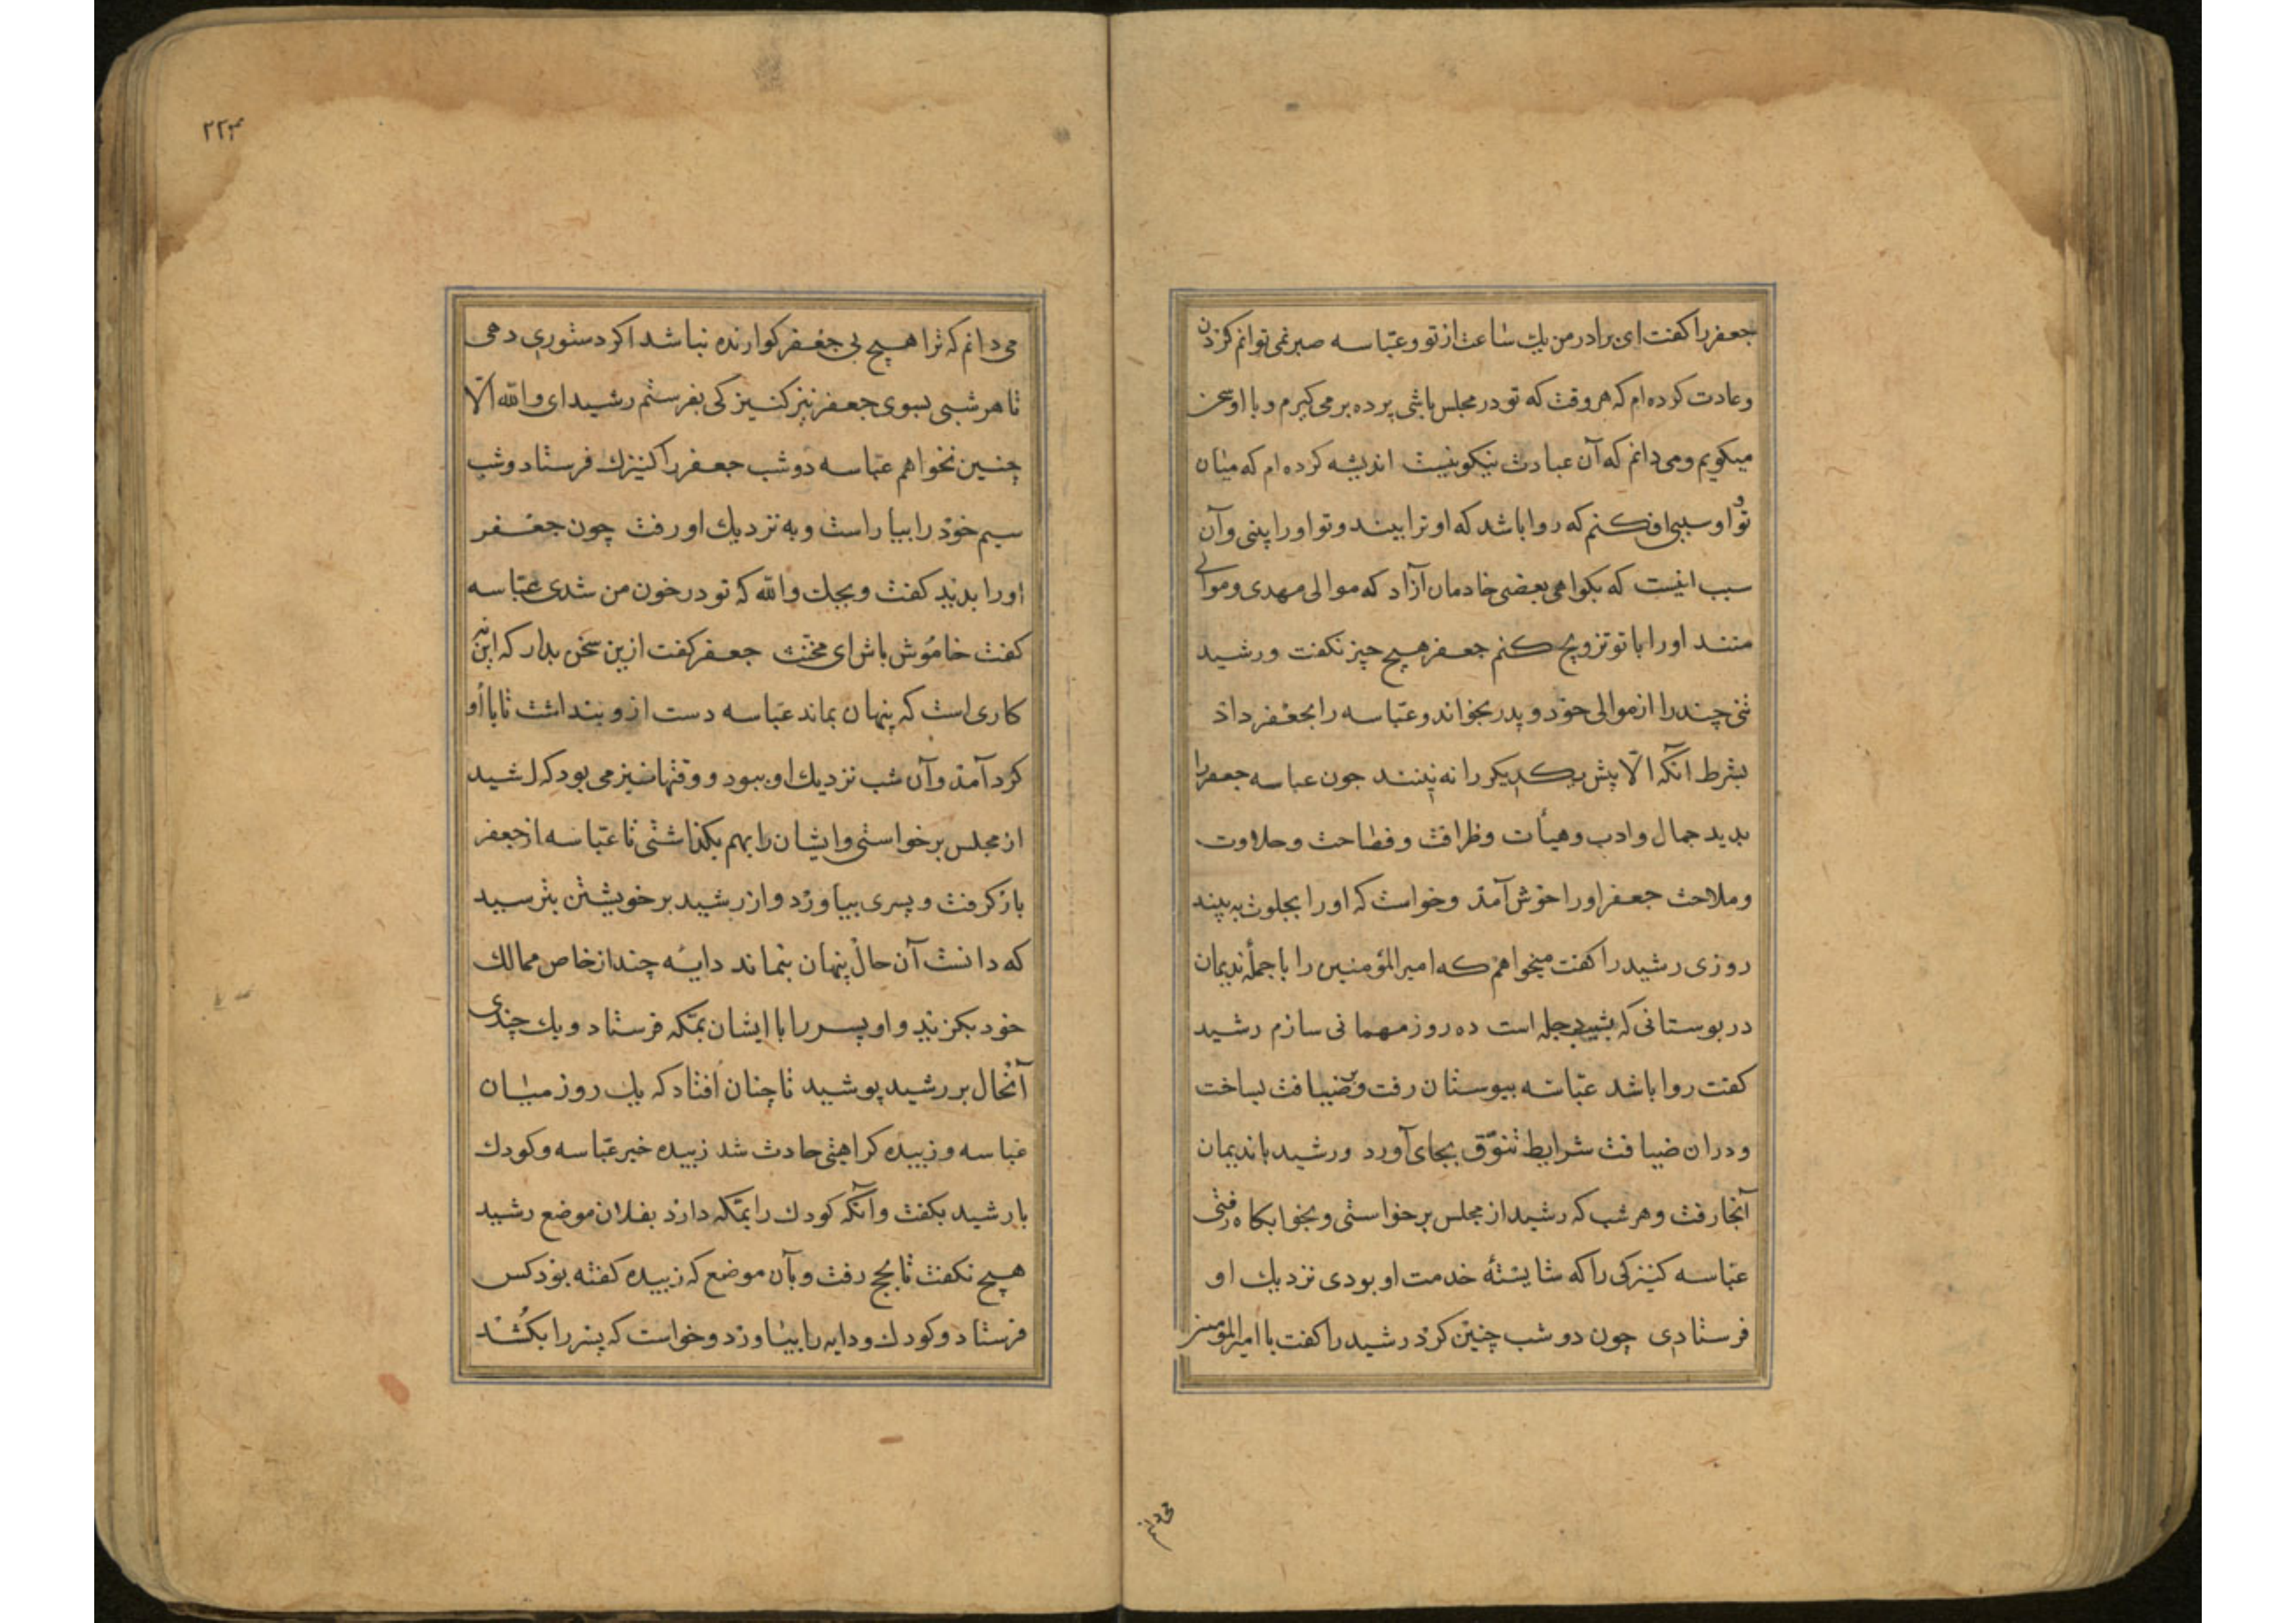 جعفر را کفت ای برادر من یك ساعت از تو و عبّاسه صبر نمی توانم کردن
و عادت کرده ام که هر وقت که تو در مجلس باشی پرده بر می کیرم و با او سخن
میکویم و می دانم که آن عبادت نیکو نیست اندیشه کرده ام که میان
تو و او سببی افکنم که روا باشد که او ترا بیند و تو او را بینی و آن
سبب اینست که بکواهی بعضی خادمان آزاد که موالی مهدی و موالی
منند او را با تو تزویج کنم جعفر هیچ چیز نکفت و رشید
تنی چند را از موالی خود و پدر بخواند و عبّاسه را بجعفر داد
بشرط آنکه الّا پیش یکدیکر را نه بینند جون عباسه جعفر را
بدید جمال و ادب و هیأت و ظرافت و فصاحت و حلاوت
و ملاحت جعفر او را خوش آمد و خواست که او را بخلوت به بیند
روزی رشید را کفت میخواهم که امیر المؤمنین را با جملهٔ ندیمان
در بوستانی که بشیب دجله است ده روز مهمانی سازم رشید
کفت روا باشد عبّاسه ببوستان رفت و ضیافت بساخت
و دران ضیافت شرایط تنوّق بجای آورد و رشید با ندیمان
آنجا رفت و هر شب که رشید از مجلس برخواستی و بخوابکاه رفتی
عبّاسه کنیزکی را که شایستهٔ خدمت او بودی نزدیك او
فرستادی چون دو شب چنین کرد رشید را کفت یا امیر المؤمنین
می دانم
۲۲۳
می دانم که ترا هیچ بی جعفر کوارنده نباشد اکر دستوری دهی
تا هر شبی بسوی جعفر نیز کنیزکی بفرستم رشید ای والله الّا
چنین نخواهم عبّاسه دو شب جعفر را کنیزك فرستاد و شب
سیم خود را بیاراست و به نزدیك او رفت چون جعفر
او را بدید کفت ویحك والله که تو در خون من شدی عبّاسه
کفت خاموش باش ای مخنّث جعفر کفت ازین سخن بدار که این نه
کاری است که پنهان بماند عبّاسه دست ازو بنداشت تا با او
کرد آمد و آن شب نزدیك او ببود و وقتها نیز می بود که رشید
از مجلس برخواستی و ایشان را بهم بکذاشتی تا عبّاسه از جعفر
بار کرفت و پسری بیاورد و از رشید بر خویشتن بترسید
که دانست آن حال پنهان بنماند دایهٔ چند از خاص ممالك
خود بکزید و او پسر را با ایشان بمکّه فرستاد و یك چندی
آنحال بر رشید پوشید تا چنان افتاد که یك روز میان
عباسه و زبیده کراهیتی حادث شد زبیده خبر عبّاسه و کودك
با رشید بکفت و آنکه کودك را بمکّه دارد بفلان موضع رشید
هیچ نکفت تا بحج رفت و بآن موضع که زبیده کفته بود کس
فرستاد و کودك و دایه را بیاورد و خواست که پسر را بکشند